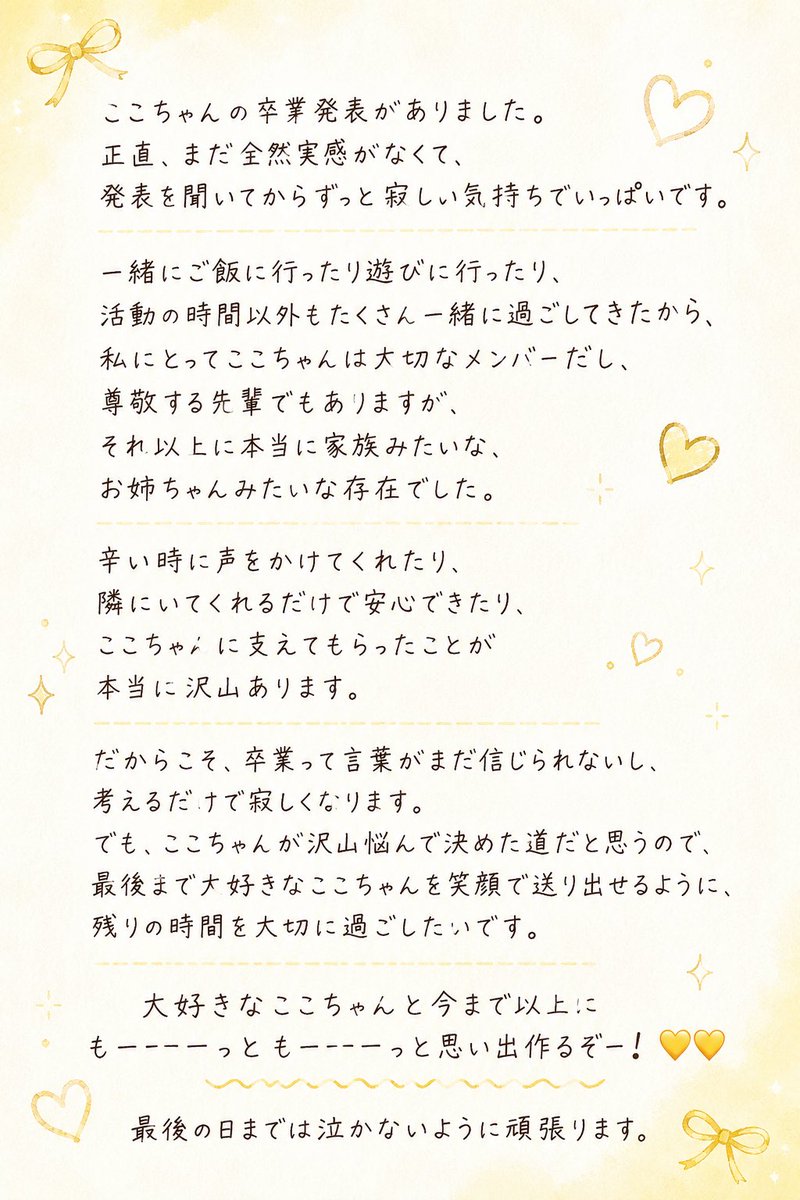 ここちゃんの卒業発表がありました。
正直、まだ全然実感がなくて、
発表を聞いてからずっと寂しい気持ちでいっぱいです。
一緒にご飯に行ったり遊びに行ったり、
活動の時間以外もたくさん一緒に過ごしてきたから、
私にとってここちゃんは大切なメンバーだし、
尊敬する先輩でもありますが、
それ以上に本当に家族みたいな、
お姉ちゃんみたいな存在でした。
辛い時に声をかけてくれたり、
隣にいてくれるだけで安心できたり、
ここちゃんに支えてもらったことが
本当に沢山あります。
だからこそ、卒業って言葉がまだ信じられないし、
考えるだけで寂しくなります。
でも、ここちゃんが沢山悩んで決めた道だと思うので、
最後まで大好きなここちゃんを笑顔で送り出せるように、
残りの時間を大切に過ごしたいです。
大好きなここちゃんと今まで以上に
もーーーーっともーーーーっと思い出作るぞー！💛💛
最後の日までは泣かないように頑張ります。